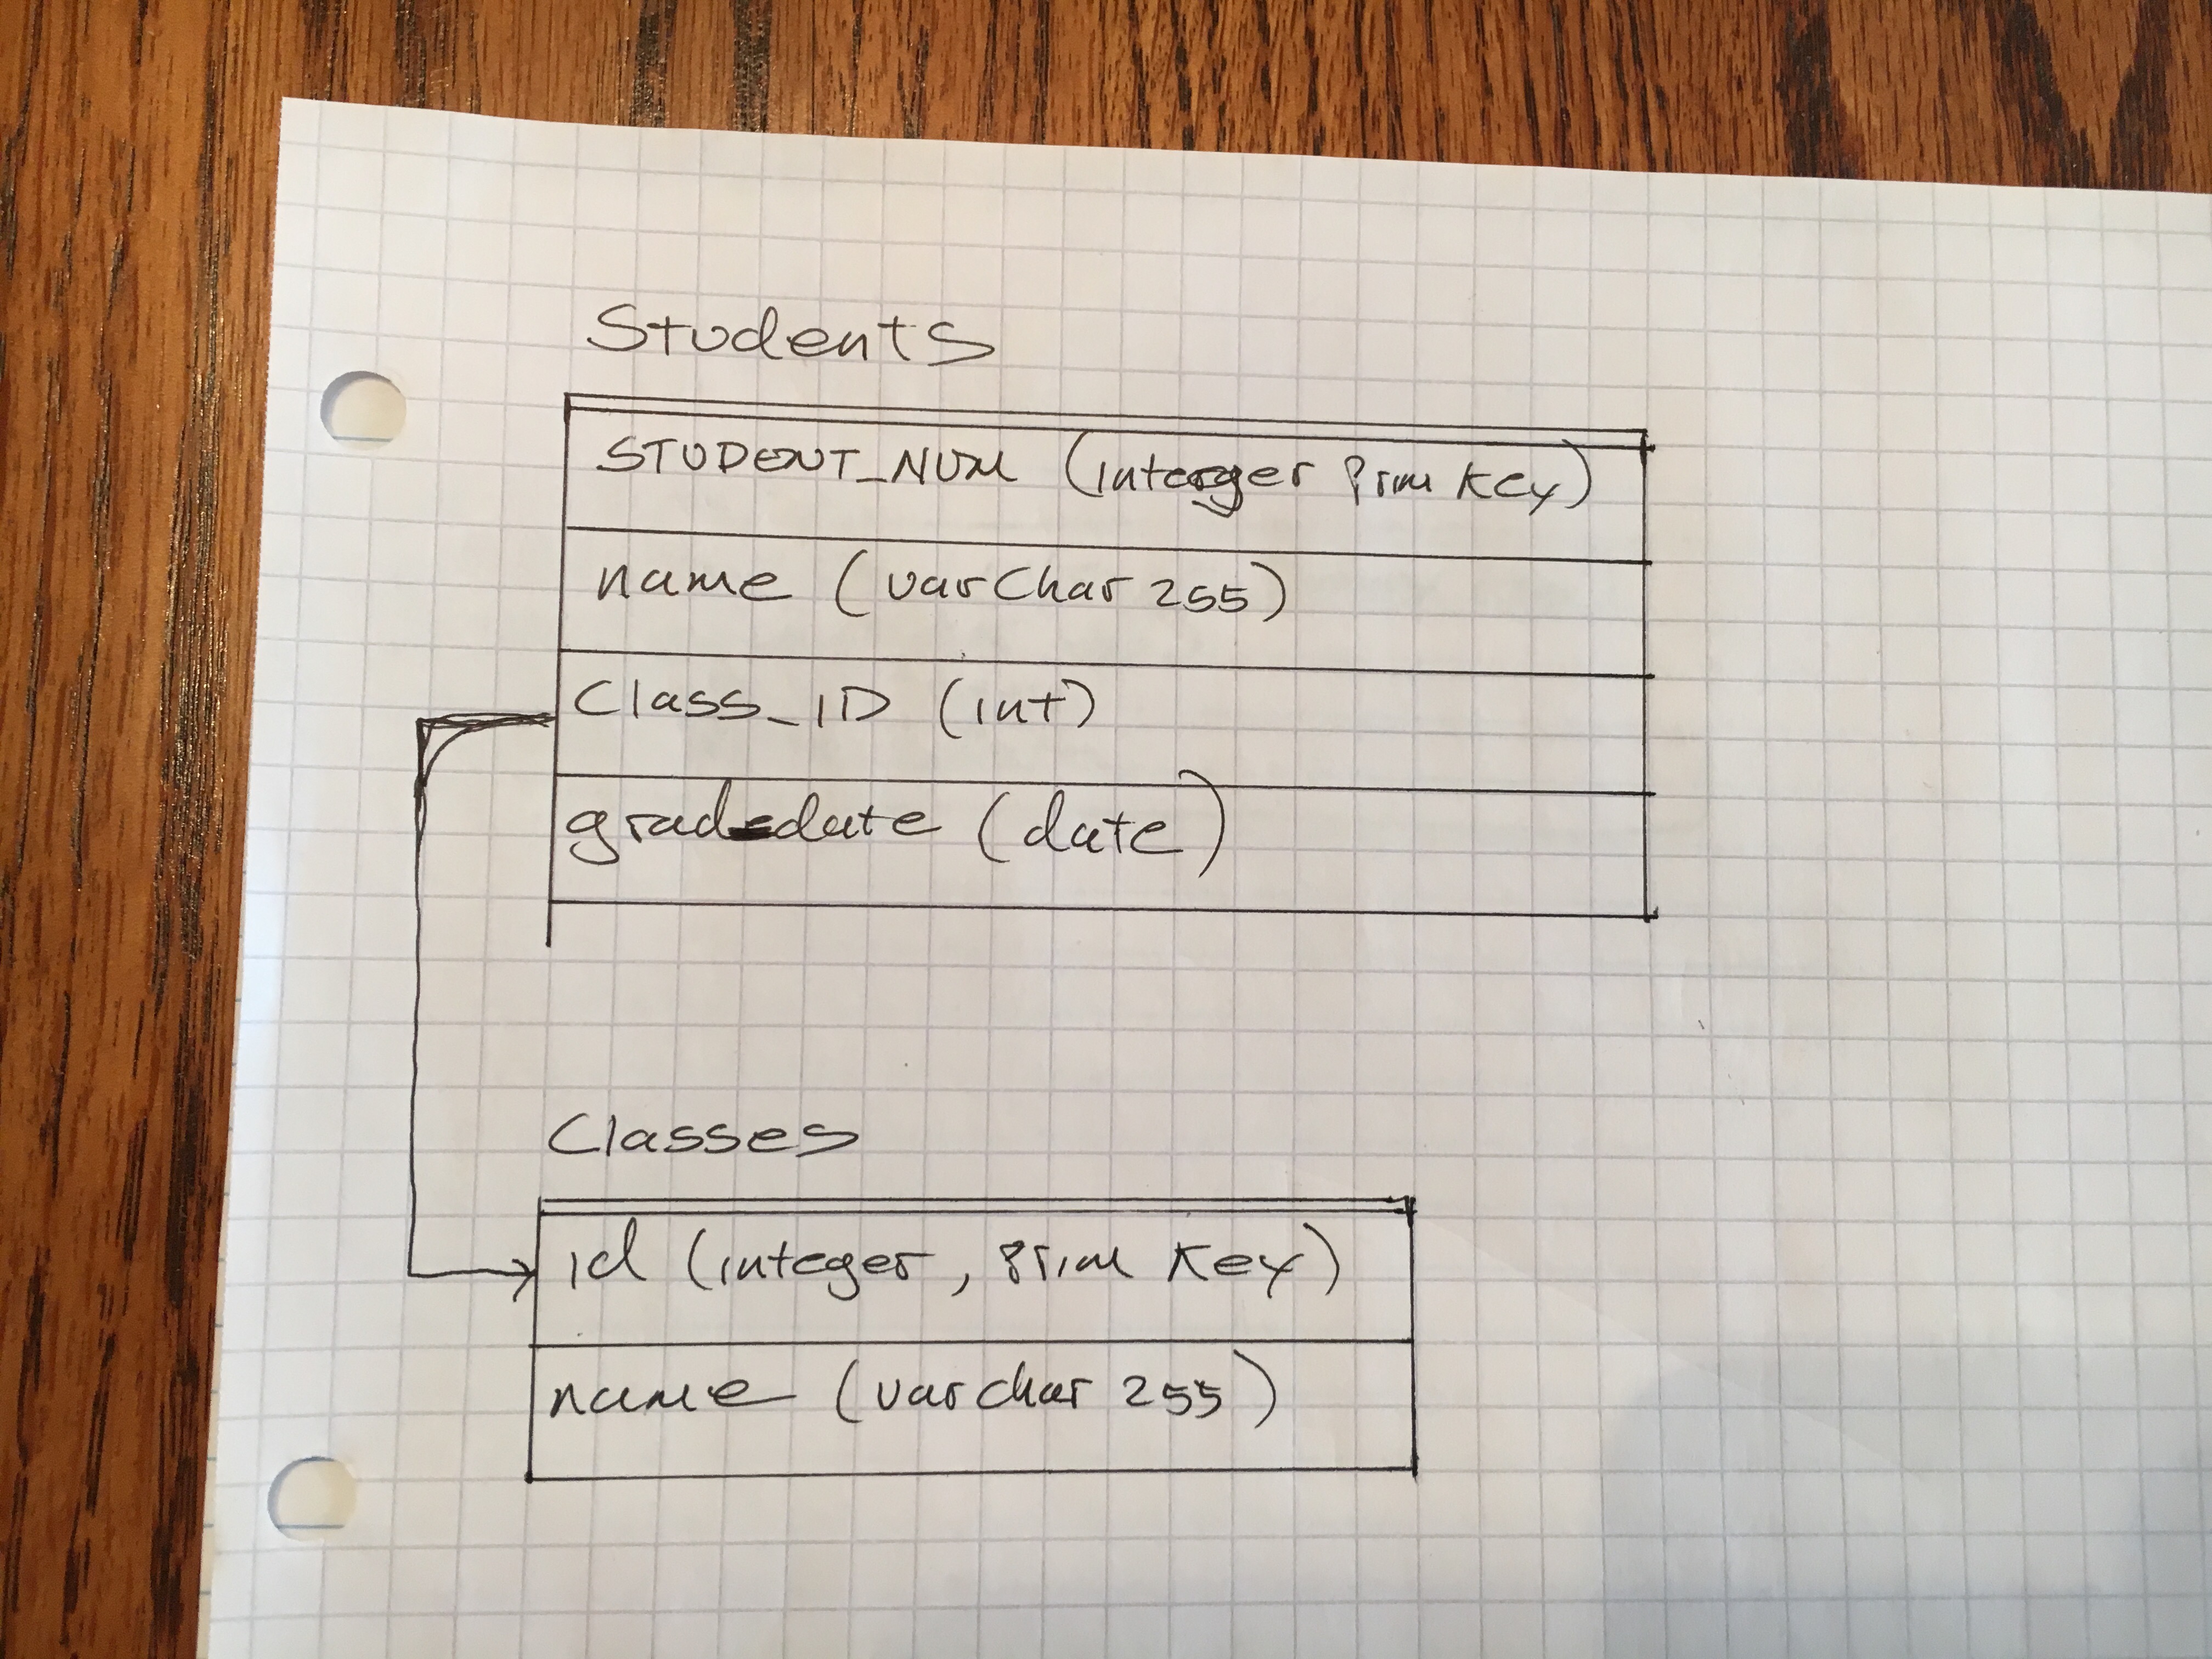 Students
STUDENT_NUM (interger Prim Key)
name (varChar 255)
Class_ID (int)
grad_date (date)
Classes
id (integer, Prim Key)
name (varchar 255)